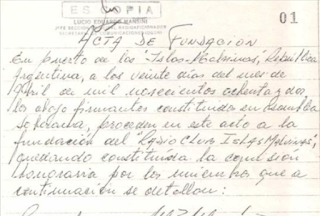 ES COPIA
LUCIO EDUARDO MANSINI
01
ACTA DE FUNDACION
En puerto de las "Islas Malvinas", República
Argentina, a los veinte días del mes de
Abril de mil novecientos ochenta y dos,
los abajo firmantes constituidos en asamblea
soberana, proceden en este acto a la
fundación del "Radio Club Islas Malvinas",
quedando constituida la comisión
honoraria por los miembros que a
continuación se detallan: